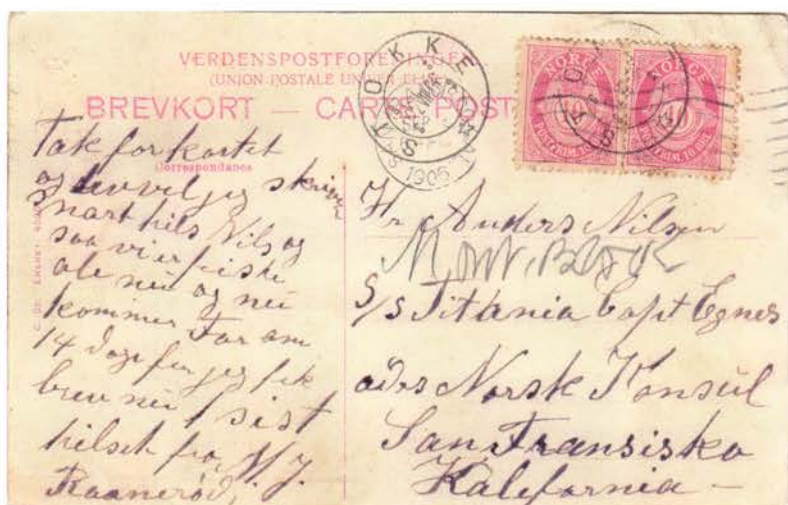 VERDENSPOSTFORENINGEN
(UNION POSTALE UNIVERSELLE)
BREVKORT — CARTE POST
Correspondance
STOKKE
1905
NORGE
NORGE
Tak for kortet
og brev vel jeg skrive
snart hils Nils og
saa vi er friske
ale nu og nu
kommer Far om
14 dage for jeg fik
brev nu sist
hilset fra
Raanerød
Hr Anders Nilsen
S/s Titania Capt Egnes
adrs Norsk Konsul
San Fransisko
Kalefornia —